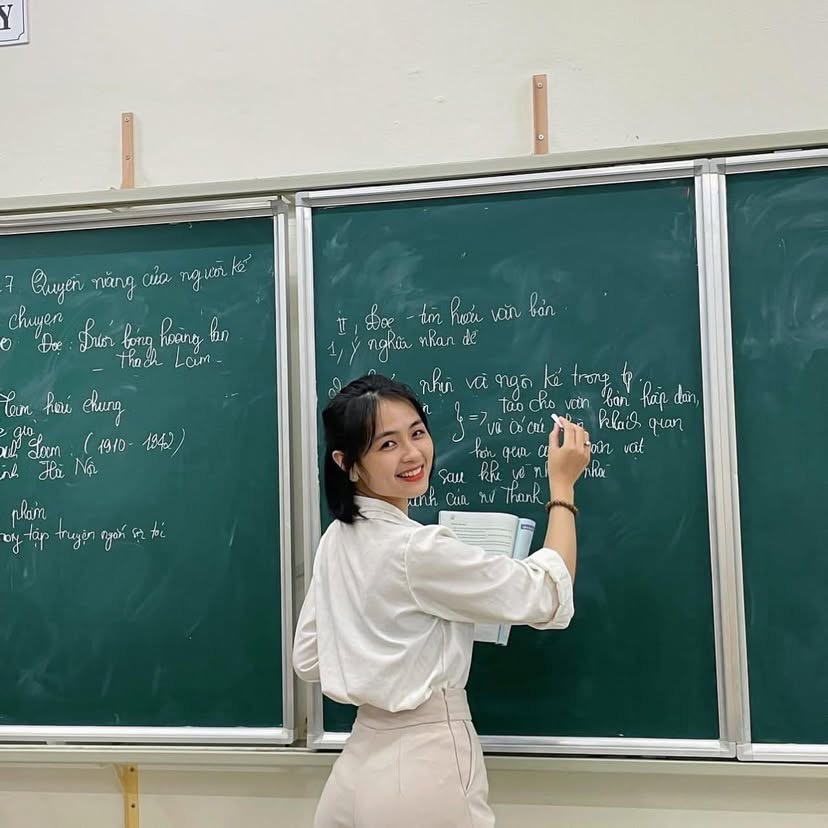 Y
7 Quyền năng của người kể
chuyện
Đọc: Dưới bóng hoàng lan
- Thạch Lam -
Tìm hiểu chung
Lam: (1910 - 1942)
Hà Nội
phẩm
tập truyện ngắn sợi tóc
II, Đọc - tìm hiểu văn bản
1, Ý nghĩa nhan đề
nhìn và ngôi kể trong tp
=> tạo cho văn bản hấp dẫn,
và có cái khách quan
hơn qua vật
sau khi về
của nv Thanh